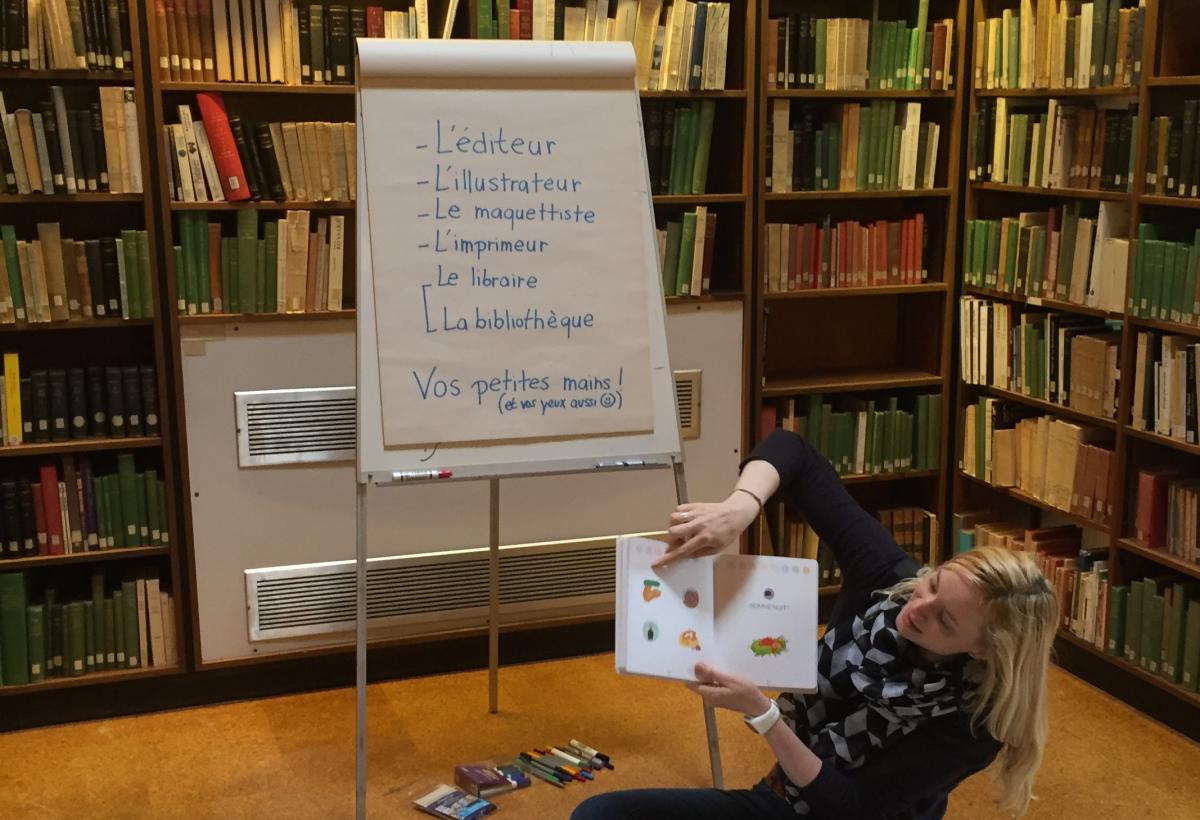 - L'éditeur
- L'illustrateur
- Le maquettiste
- L'imprimeur
Le libraire
La bibliothèque
Vos petites mains !
(et vos yeux aussi ☺)